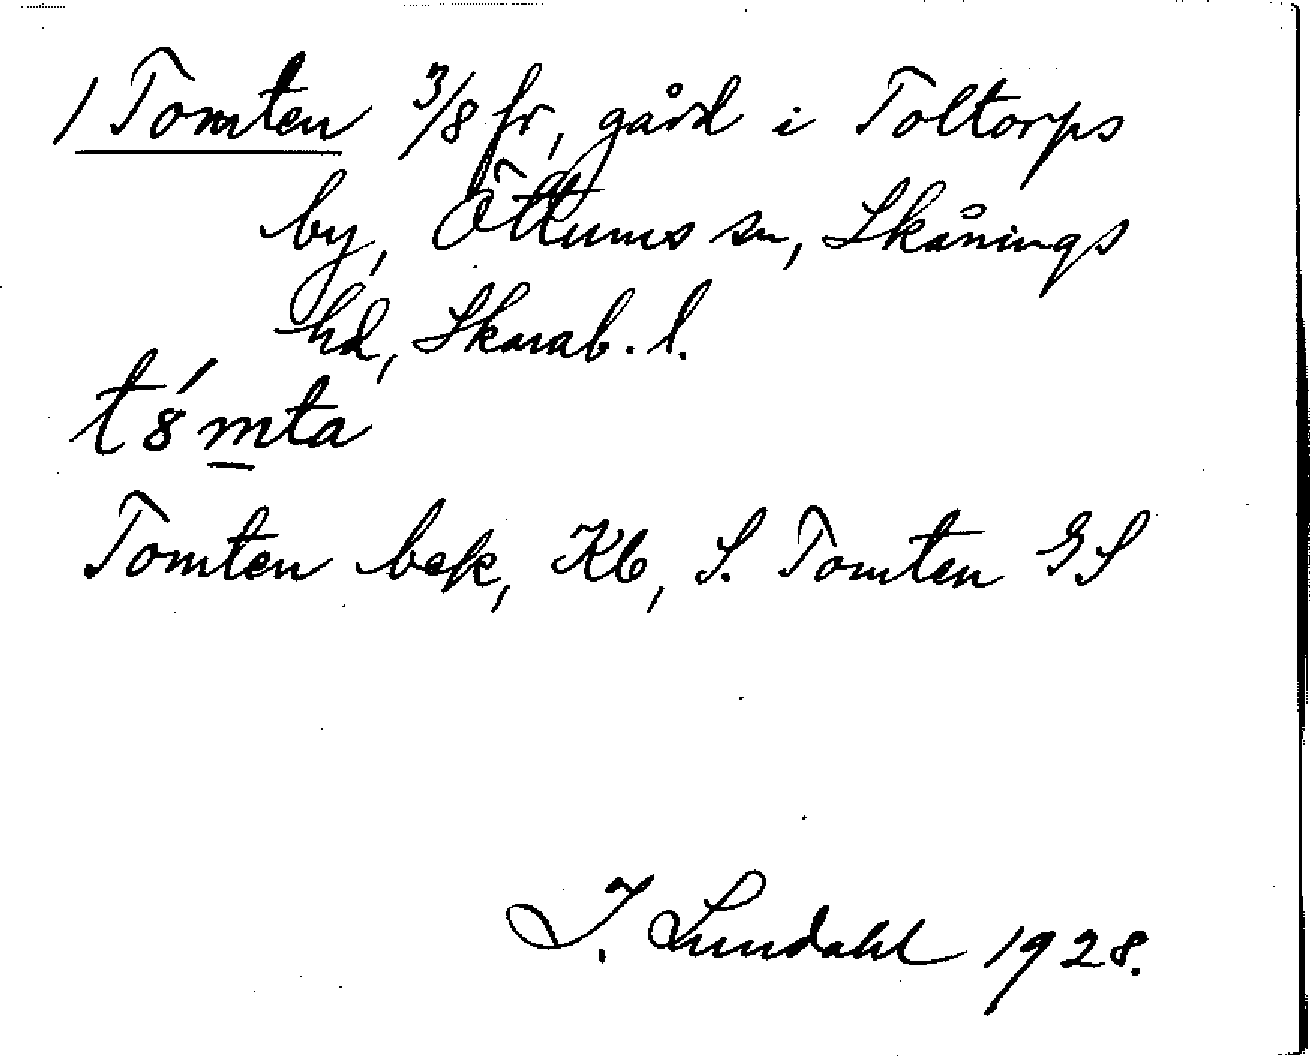 1 Tomten 3/8 fr, gård i Toltorps
by, Öttums sn, Skånings
hd, Skarab. l.
t8́mta
Tomten bek, Kb, S. Tomten GS
I. Lundahl 1928.